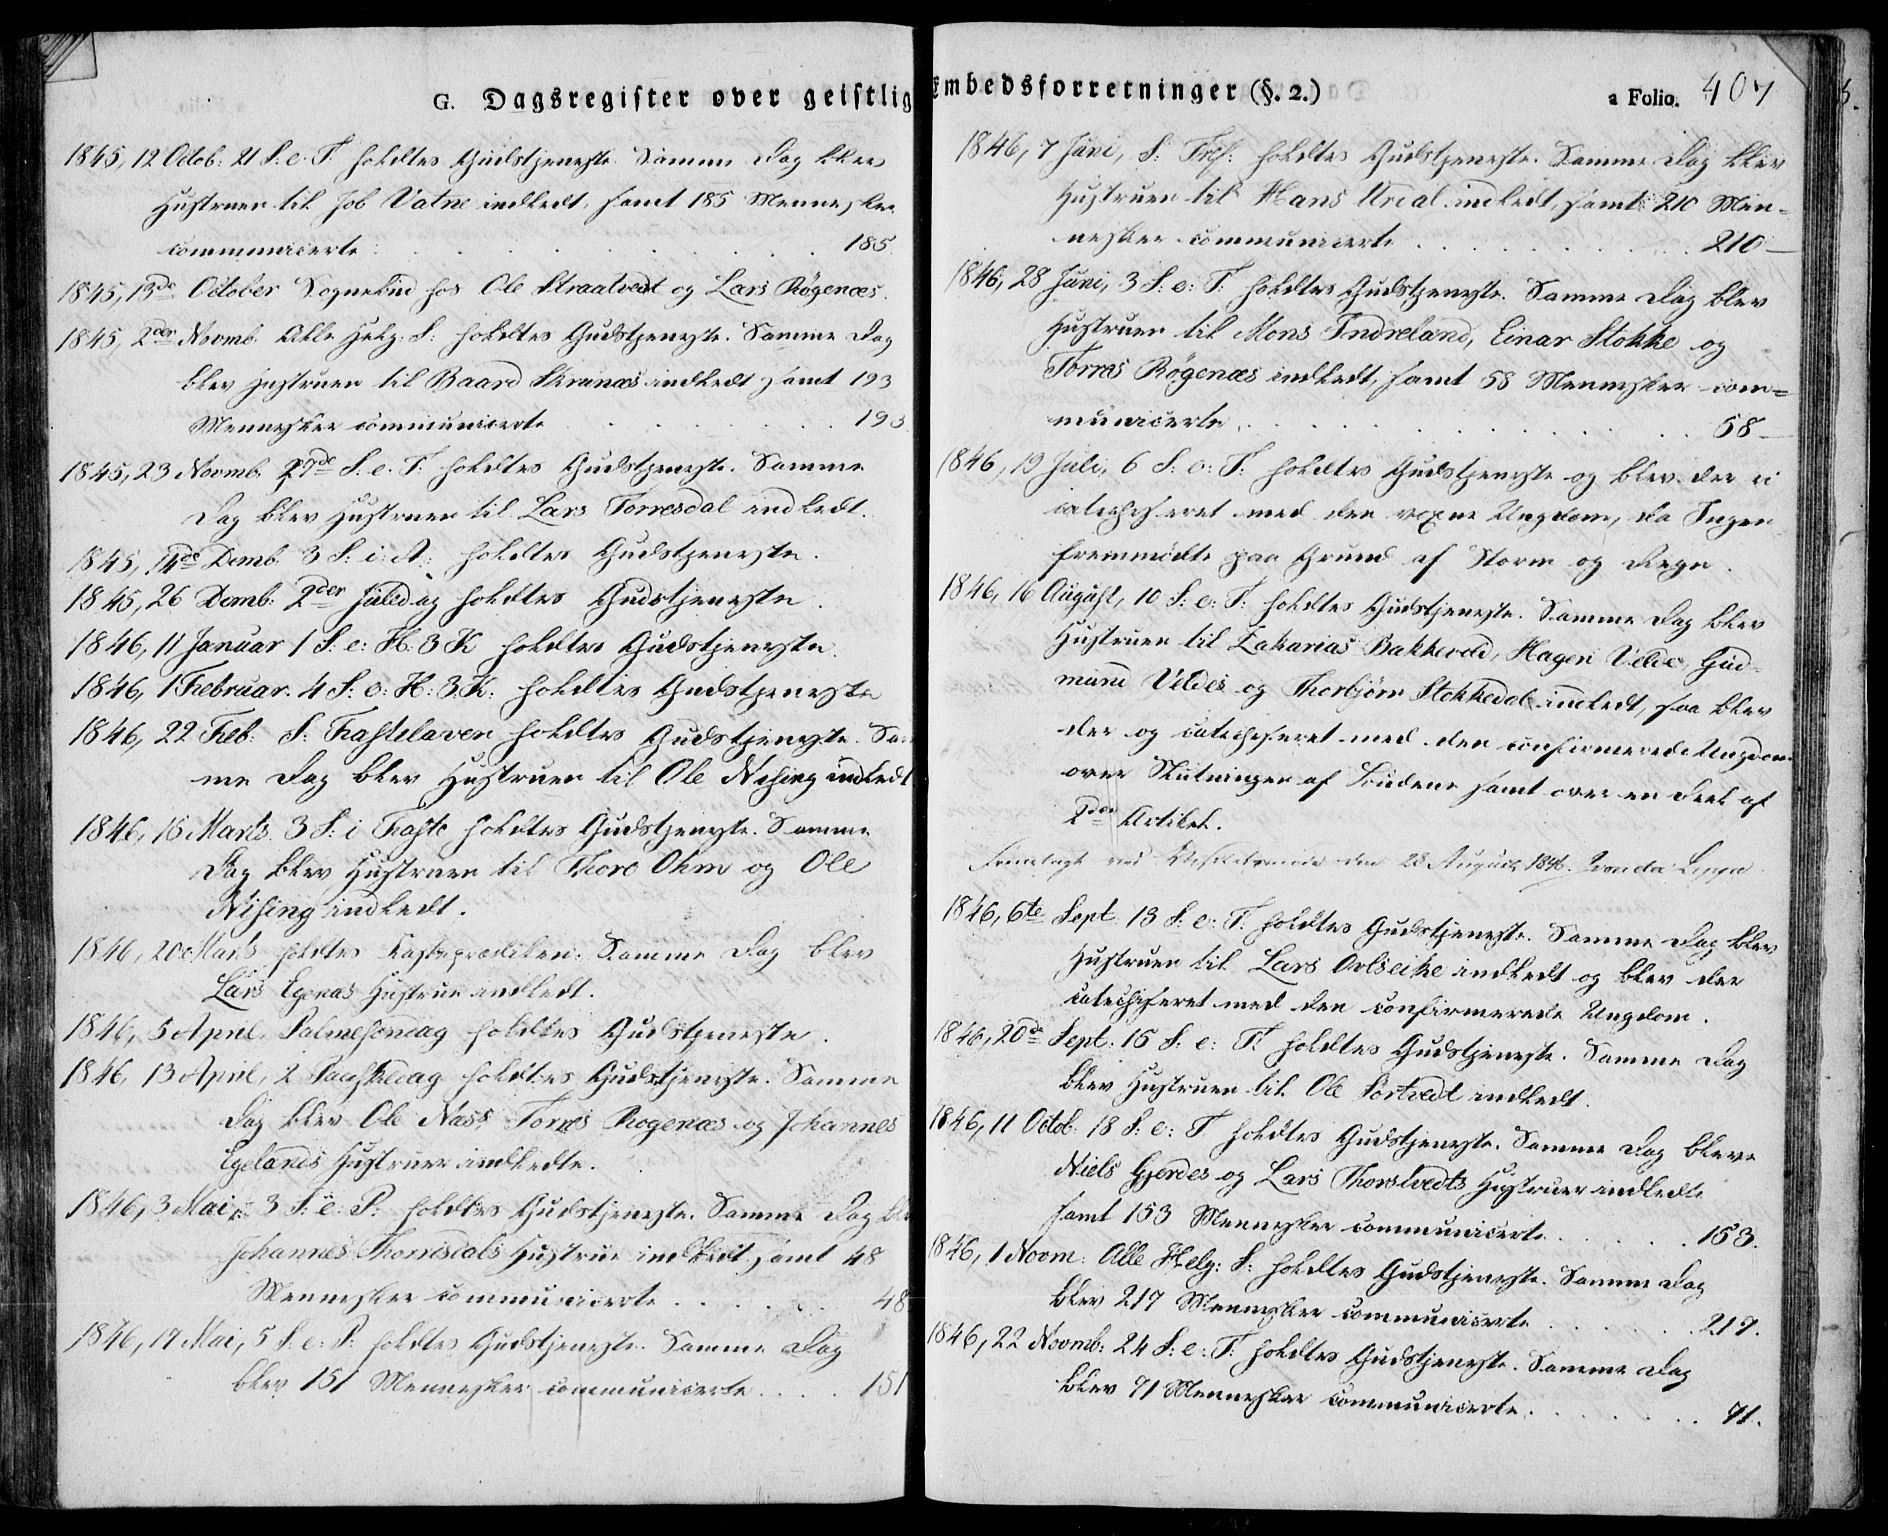 G. Dagsregister over geistlig
1845, 12 Octob: 21 S: e. T. holdtes Gudstjeneste. Samme Dag blev
Hustruen til Job Vatne indledt, samt 185 Mennesker
communicerte . . . . . . . 185.
1845, 13de October Sognebud hos Ole Straatvedt og Lars Røgenæs.
1845, 2den Novmb. Alle Helg. S: holdtes Gudstjeneste. Samme Dag
blev Hustruen til Baard indledt samt 193
Mennesker communicerte . . . . . . 193
1845, 23 Novmb. 27de S: e. T: holdtes Gudstjeneste. Samme
Dag blev Hustruen til Lars Torresdal indledt.
1845, 14de Demb. 3 S: i. A: holdtes Gudstjeneste.
1845, 26 Demb: 2den Juledag holdtes Gudstjeneste.
1846, 11 Januar 1 S: e: H: 3 K holdtes Gudstjeneste.
1846, 1 Februar. 4 S: e: H: 3. K: holdtes Gudstjeneste
1846, 22 Feb: S: Fastelaven holdtes Gudstjeneste. Sam
me Dag blev Hustruen til Ole Nising indledt
1846, 15 Marts. 3 S: i Faste holdtes Gudstjeneste. Samme
Dag blev Hustruen til Thore Ohm og Ole
Nising indledt.
1846, 20 Marts holdtes Fasteprædiken. Samme Dag blev
Lars Egenæs Hustrue indledt.
1846, 5 April, Palmesøndag holdtes Gudstjeneste.
1846, 13 April, 2 Paaskedag holdtes Gudstjeneste. Samme
Dag blev Ole Næss Torres Røgenæs og Johannes
Egelands Hustruer indledte.
1846, 3 Mai, 3 S: e: P: holdtes Gudstjeneste. Samme Dag blev
Johannes Hustrue indledt, samt 48
Mennesker communicerte . . . . . 48
1846, 17 Mai, 5 S: e: P: holdtes Gudstjeneste. Samme Dag
blev 151 Mennesker communicerte . . . . 151
Embedsforretninger (§. 2.)
a Folio. 407
1846, 7 Juni, S: Tref: holdtes Gudstjeneste. Samme Dag blev
Hustruen til Hans indledt, samt 210 Men=
nesker communicerte . . . . . . . 210
1846, 28 Juni, 3 S: e: T: holdtes Gudstjeneste. Samme Dag blev
Hustruen til Mons Indreland, Einar Stokke og
Torres Røgenæs indledt, samt 58 Mennesker com=
municerte . . . . . . . . . 58
1846, 19 Juli, 6 S: e: T: holdtes Gudstjeneste og blev der ei
catechiseret med den voxne Ungdom, da Ingen
fremmødte paa Grund af Storm og Regn.
1846, 16 August, 10 S: e: T: holdtes Gudstjeneste. Samme Dag blev
Hustruen til Zakarias Bakkevold, Hagen Velde, Gud=
mund Veldes og Thorbjørn Stokkedal indledt, saa blev
der og catechiseret med den confirmerede Ungdom
over Slutningen af Budene samt over en Deel af
2den Artikel.
Fremlagt ved den 28 August 1846.
1846, 6te Sept. 13 S: e: T: holdtes Gudstjeneste. Samme Dag blev
Hustruen til Lars indledt og blev der
catechiseret med den confirmerede Ungdom.
1846, 20de Sept: 15 S: e: T: holdtes Gudstjeneste. Samme Dag
blev Hustruen til Ole indledt.
1846, 11 Octob: 18 S: e: T. holdtes Gudstjeneste. Samme Dag bleve
Niels Gjerdes og Lars Thorstvedts Hustruer indledte
samt 153 Mennesker communicerte . . . . . 153.
1846, 1 Novm: Alle Helg: S: holdtes Gudstjeneste. Samme Dag
blev 217 Mennesker communicerte . . . . . . 217.
1846, 22 Novmb: 24 S: e: T: holdtes Gudstjeneste. Samme Dag
blev 71 Mennesker communicerte . . . . . . 71.